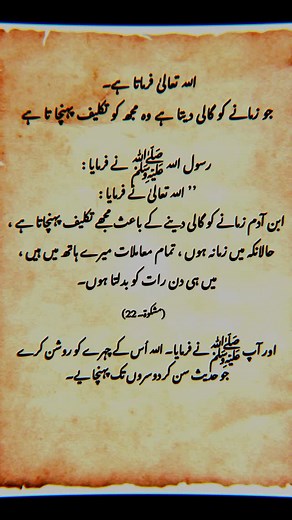 اللہ تعالیٰ فرماتا ہے۔
جو زمانے کو گالی دیتا ہے وہ مجھ کو تکلیف پہنچاتا ہے
رسول اللہ ﷺ نے فرمایا :
’’ اللہ تعالیٰ نے فرمایا :
ابن آدم زمانے کو گالی دینے کے باعث مجھے تکلیف پہنچاتا ہے ،
حالانکہ میں زمانہ ہوں ، تمام معاملات میرے ہاتھ میں ہیں ،
میں ہی دن رات کو بدلتا ہوں۔
(مشکوٰۃ۔22)
اور آپ ﷺ نے فرمایا۔ اللہ اُس کے چہرے کو روشن کرے
جو حدیث سن کر دوسروں تک پہنچایے۔